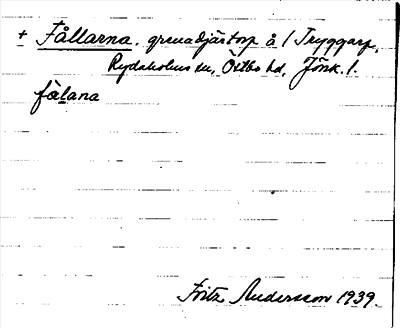 + Fållarna, grenadjärtorp å 1 Tryggarp,
Rydaholms sn, Östbo hd, Jönk. l.
fålana
Fritz Andersson 1939.